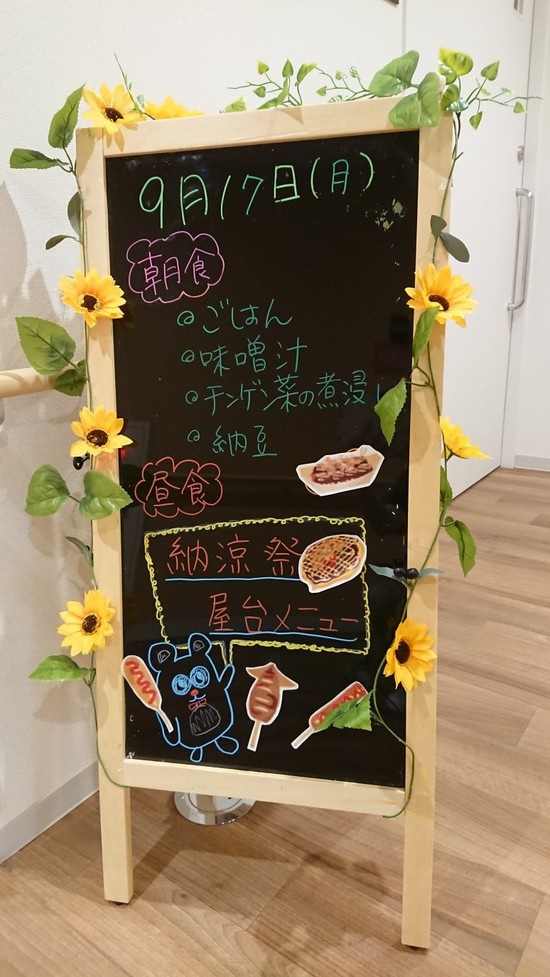 9月17日(月)
朝食
◎ごはん
◎味噌汁
◎チンゲン菜の煮浸し
◎納豆
昼食
納涼祭
屋台メニュー